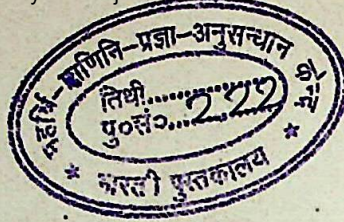 महर्षि-पाणिनि-प्रज्ञा-अनुसन्धान
तिथी..................
पु०सं०...222
भारती पुस्तकालय